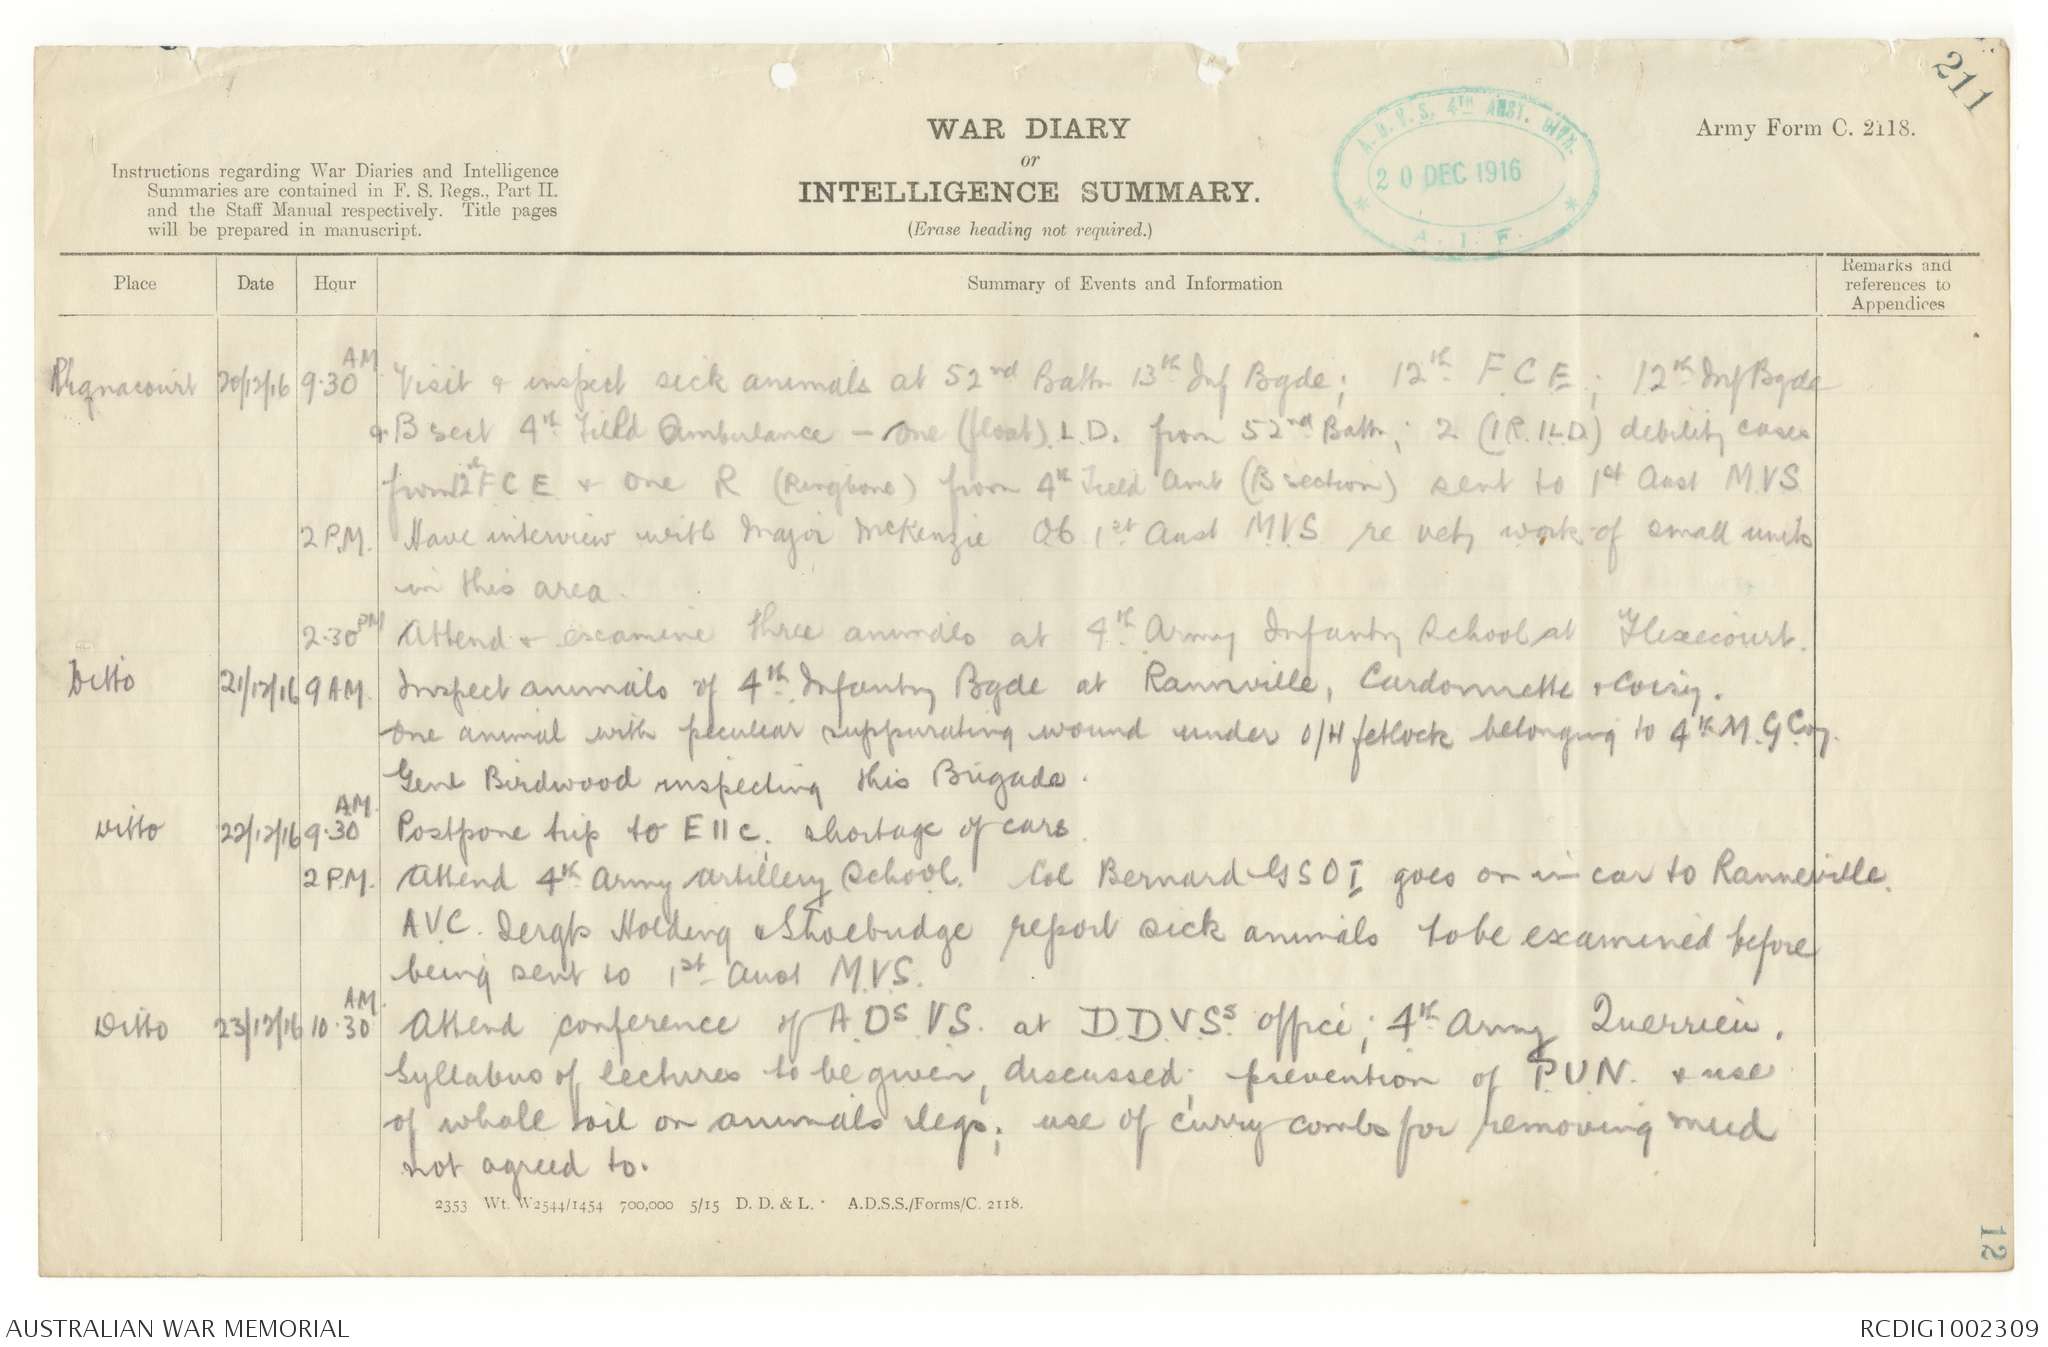 211
WAR DIARY
or
INTELLIGENCE SUMMARY.
(Erase heading not required.)
Army Form C. 2118.
Instructions regarding War Diaries and Intelligence
Summaries are contained in F. S. Regs., Part II.
and the Staff Manual respectively. Title pages
will be prepared in manuscript.
A.D.V.S. 4TH AUST. DIVN.
20 DEC 1916
A.I.F.
Place Date Hour Summary of Events and Information Remarks and references to Appendices
20/12/16 9.30 AM Visit & inspect sick animals at 52nd Battn 13th Inf Bgde; 12th F C E; 12th Inf Bgde
& B sect 4th Field Ambulance – one (float) L.D. from 52nd Battn; 2 (1R. 1L.D.) debility cases
from 12th F C E & one R (Ringbone) from 4th Field Amb (B section) sent to 1st Aust M.V.S
2 P.M. Have interview with Major McKenzie 1st Aust M.V.S re vety work of small units
in this area.
2.30 PM Attend & examine three animals at 4th Army Infantry School at Flixecourt.
Ditto 21/12/16 9 A.M. Inspect animals of 4th Infantry Bgde at Rannville, Cardonnette & Coisy.
One animal with peculiar suppurating wound under O/H fetlock belonging to 4th M.G Coy.
Genl Birdwood inspecting this Brigade.
Ditto 22/12/16 9.30 A.M. Postpone trip to E11c, shortage of cars.
2 P.M. Attend 4th Army Artillery School. Col Bernard GSO I goes on in car to Ranneville.
A.V.C. Sergts Holding & Shoebridge report sick animals to be examined before
being sent to 1st Aust M.V.S.
Ditto 23/12/16 10.30 A.M. Attend conference of A.Ds V.S. at D.D.V.Ss office; 4th Army Querrieu.
Syllabus of lectures to be given, discussed; prevention of P.U.N. & use
of whale oil on animals legs; use of curry combs for removing mud
not agreed to.
2353 Wt. W2544/1454 700,000 5/15 D. D. & L. A.D.S.S./Forms/C. 2118.
12
AUSTRALIAN WAR MEMORIAL
RCDIG1002309